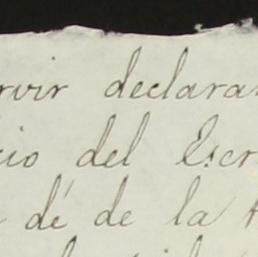 rvir declara
cio del Escr
dé de la